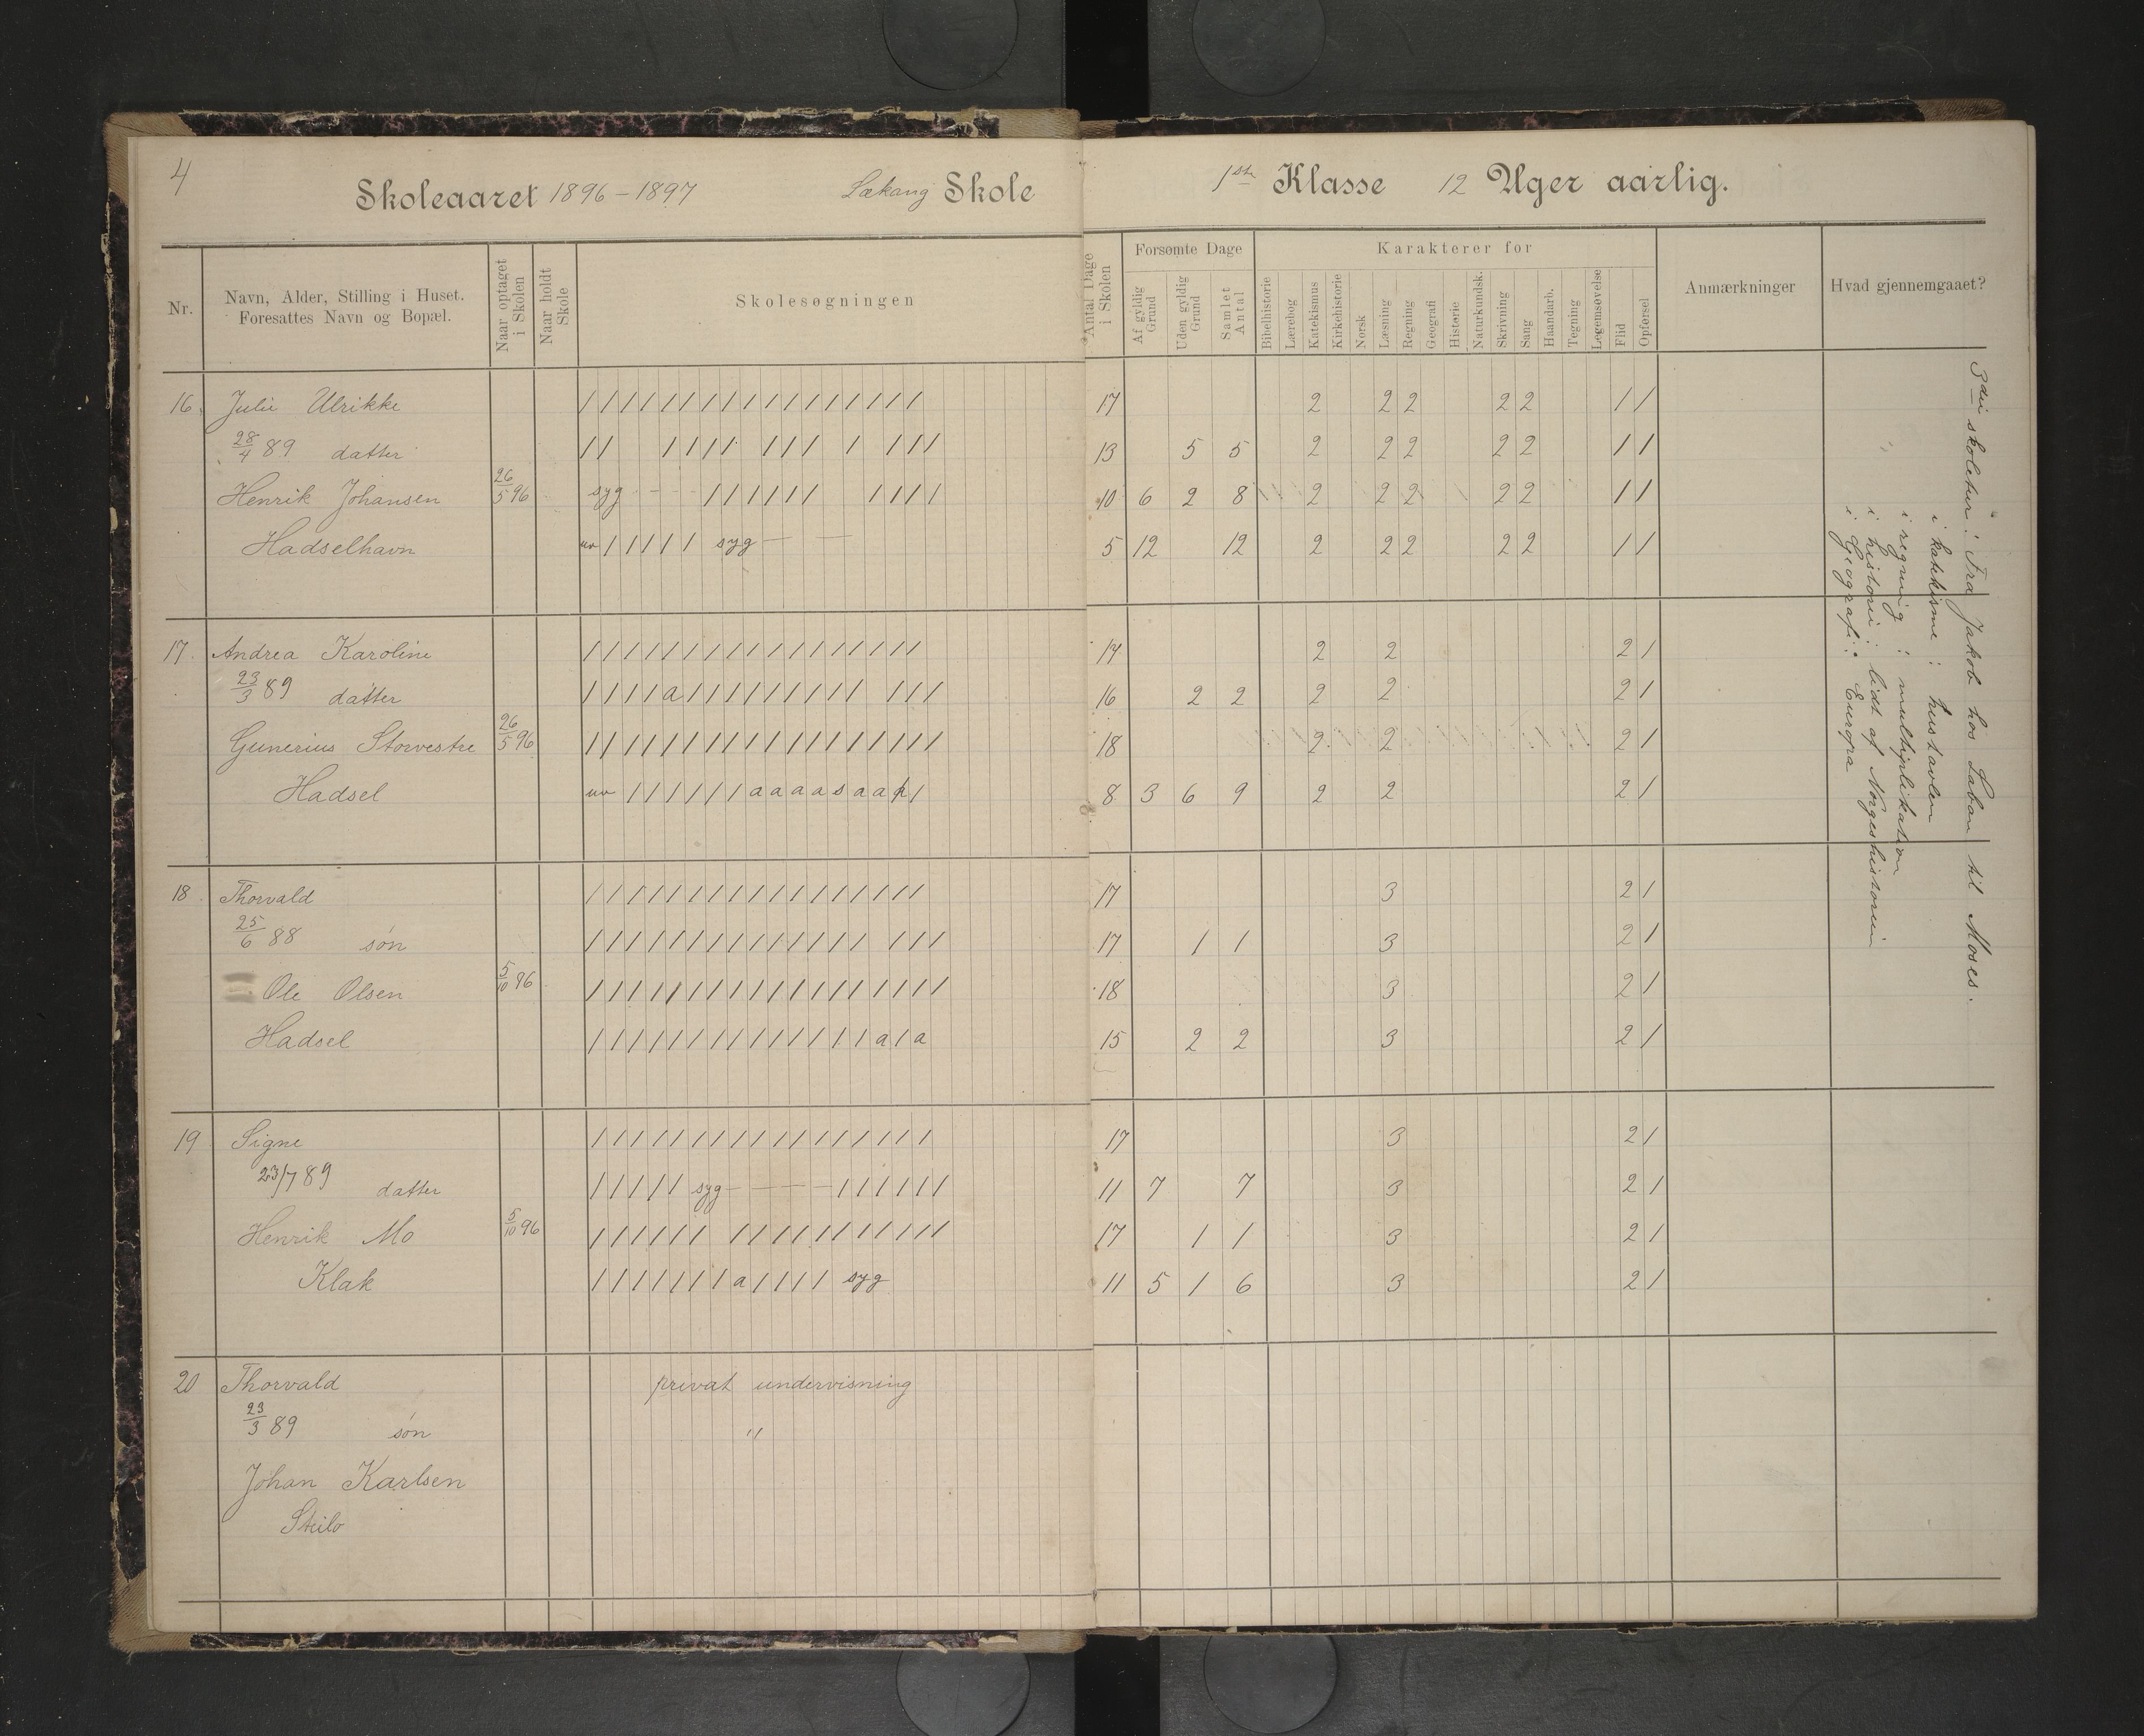 4
Skoleaaret 1896-1897 Lekang Skole 1ste Klasse 12 Uger aarlig.
Nr. Navn, Alder, Stilling i Huset. Foresattes Navn og Bopæl. Naar optaget i Skolen Naar holdt Skole Skolesøgningen Antal Dage i Skolen Forsømte Dage Karakterer for Anmærkninger Hvad gjennemgaaet?
Af gyldig Grund Uden gyldig Grund Samlet Antal Bibelhistorie Lærebog Katekismus Kirkehistorie Norsk Læsning Regning Geografi Historie Naturkundsk. Skrivning Sang Haandarb. Tegning Legemsøvelse Flid Opførsel
16. Julie Ulrikke / / / / / / / / / / / / / / / / / 17 2 2 2 2 2 1 1
28/4 89 datter / / / / / / / / / / / / / 13 5 5 2 2 2 2 2 1 1
Henrik Johansen 26/5 96 syg - - / / / / / / / / / / 10 6 2 8 2 2 2 2 2 1 1
Hadselhavn uv / / / / / syg — — 5 12 12 2 2 2 2 2 1 1
17. Andrea Karoline / / / / / / / / / / / / / / / / / 17 2 2 2 1
23/3 89 datter / / / / a / / / / / / / / / / / / 16 2 2 2 2 2 1
Gunerius Storvestre 26/5 96 / / / / / / / / / / / / / / / / / / 18 2 2 2 1
Hadsel uv / / / / / / / a a a a s a a / 8 3 6 9 2 2 2 1
18. Thorvald / / / / / / / / / / / / / / / / / 17 3 2 1
25/6 88 søn / / / / / / / / / / / / / / / / / 17 1 1 3 2 1
Ole Olsen 5/10 96 / / / / / / / / / / / / / / / / / / 18 3 2 1
Hadsel / / / / / / / / / / / / / / a / a 15 2 2 3 2 1
19. Signe / / / / / / / / / / / / / / / / / 17 3 2 1
23/7 89 datter / / / / / syg — — — — / / / / / / 11 7 7 3 2 1
Henrik Mo 5/10 96 / / / / / / / / / / / / / / / / / 17 1 1 3 2 1
Klak / / / / / / / a / / / / syg 11 5 1 6 3 2 1
20 Thorvald privat undervisning
23/3 89 søn "
Johan Karlsen
Steilo
3die skoletur: Fra Jakob hos Laban til Moses.
i katekisme: hustavlen
i regning: multiplikation
i historie: lidt af Norgeshistorien
i Geografi: Europa